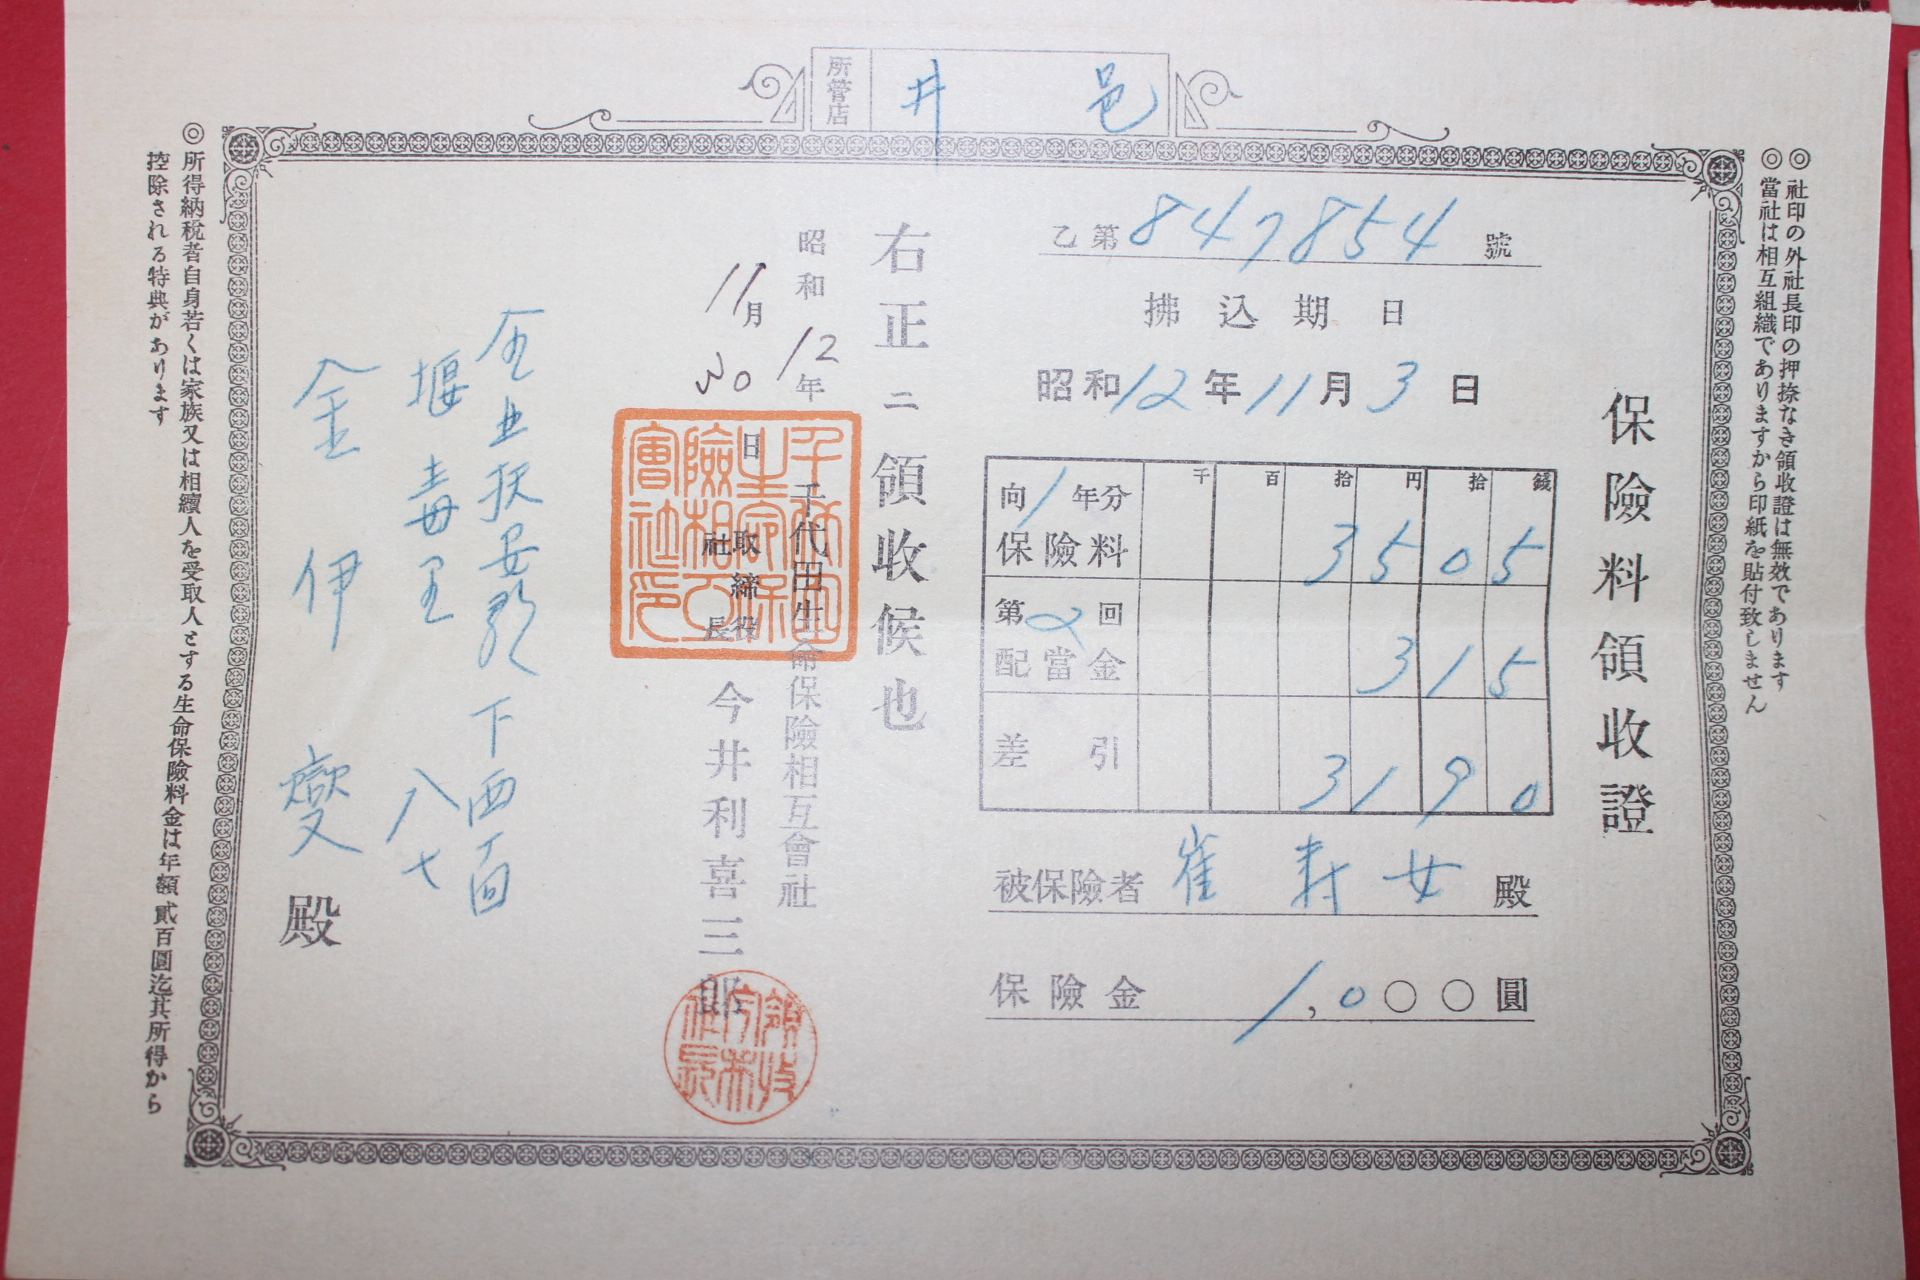 所管店 井邑
◎社印の外社長印の押捺なき領收證は無效であります
◎當社は相互組織でありますから印紙を貼付致しません
保險料領收證
乙第847854號
拂込期日
昭和12年11月3日
千 百 拾 円 拾 錢
向1年分保險料 3 5 0 5
第2回配當金 3 1 5
差引 3 1 9 0
被保險者 崔 女 殿
保險金 1,000圓
右正ニ領收候也
昭和12年
11月30日
千代田生命保險相互會社
取締役社長 今井利喜三郎
全北扶安郡下西面
堰毒里 八七
金伊燮殿
◎所得納稅者自身若くは家族又は相續人を受取人とする生命保險料金は年額貳百圓迄其所得から
控除される特典があります